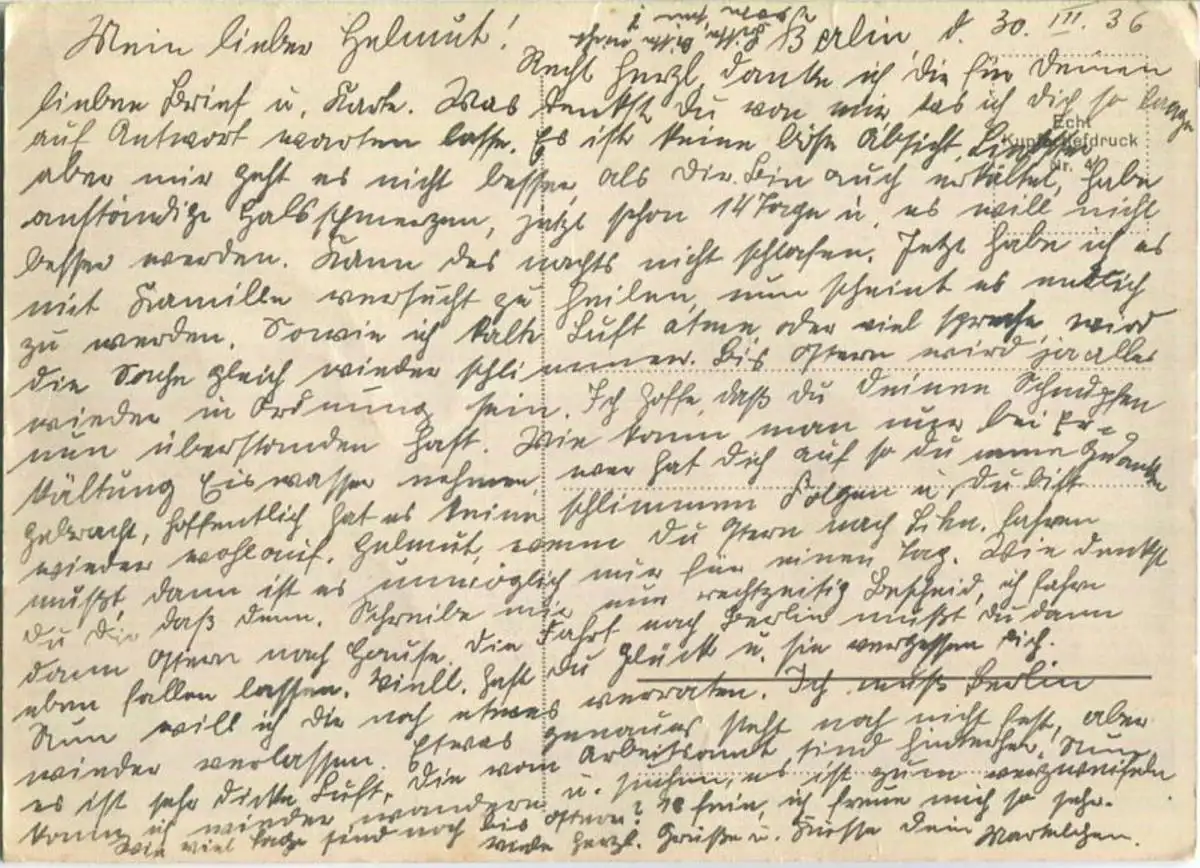 Mein lieber Helmut! Berlin, d. 30. III. 36
Recht herzl. danke ich dir für Deinen
lieben Brief u. Karte. Was denkst Du von mir das ich Dich so lange
auf Antwort warten lasse. Es ist keine böse Absicht,
aber mir geht es nicht besser als Dir. Bin auch erkältet, habe
anständige Halsschmerzen, jetzt schon 14 Tage u. es will nicht
besser werden. Kann des nachts nicht schlafen. Jetzt habe ich es
mit Kamille versucht zu heilen, nun scheint es endlich
zu werden. Sowie ich kalte Luft atme oder viel spreche, wird
die Sache gleich wieder schlimmer. Bis Ostern wird ja alles
wieder in Ordnung sein. Ich hoffe, daß Du Deinen Schnupfen
nun überstanden hast. Wie kann man nur bei Er-
kältung Eiswasser nehmen, wer hat Dich auf so dumme Gedanken
gebracht, hoffentlich hat es keine schlimmen Folgen u. Du bist
wieder wohlauf. Helmut, wenn Du Ostern nach fahren
mußt, dann ist es unmöglich nur für einen Tag. Wie denkst
Du Dir daß denn. Schreibe mir nur rechtzeitig Bescheid, ich fahre
dann Ostern nach Hause. Die Fahrt nach Berlin mußt Du dann
eben fallen lassen. Viell. hast Du Glück u. sie vergessen Dich.
Nun will ich dir noch etwas verraten. Ich muß Berlin
wieder verlassen. Etwas genaues steht noch nicht fest, aber
es ist sehr dicke Luft, die vom Arbeitsamt sind hinterher. Nun
kann ich wieder wandern u. suchen, es ist zum verzweifeln
Wie viel Tage sind noch bis Ostern? fein, ich freue mich so sehr.
Viele herzl. Grüße u. Küsse Dein
Echt
Kupfertiefdruck
Nr.